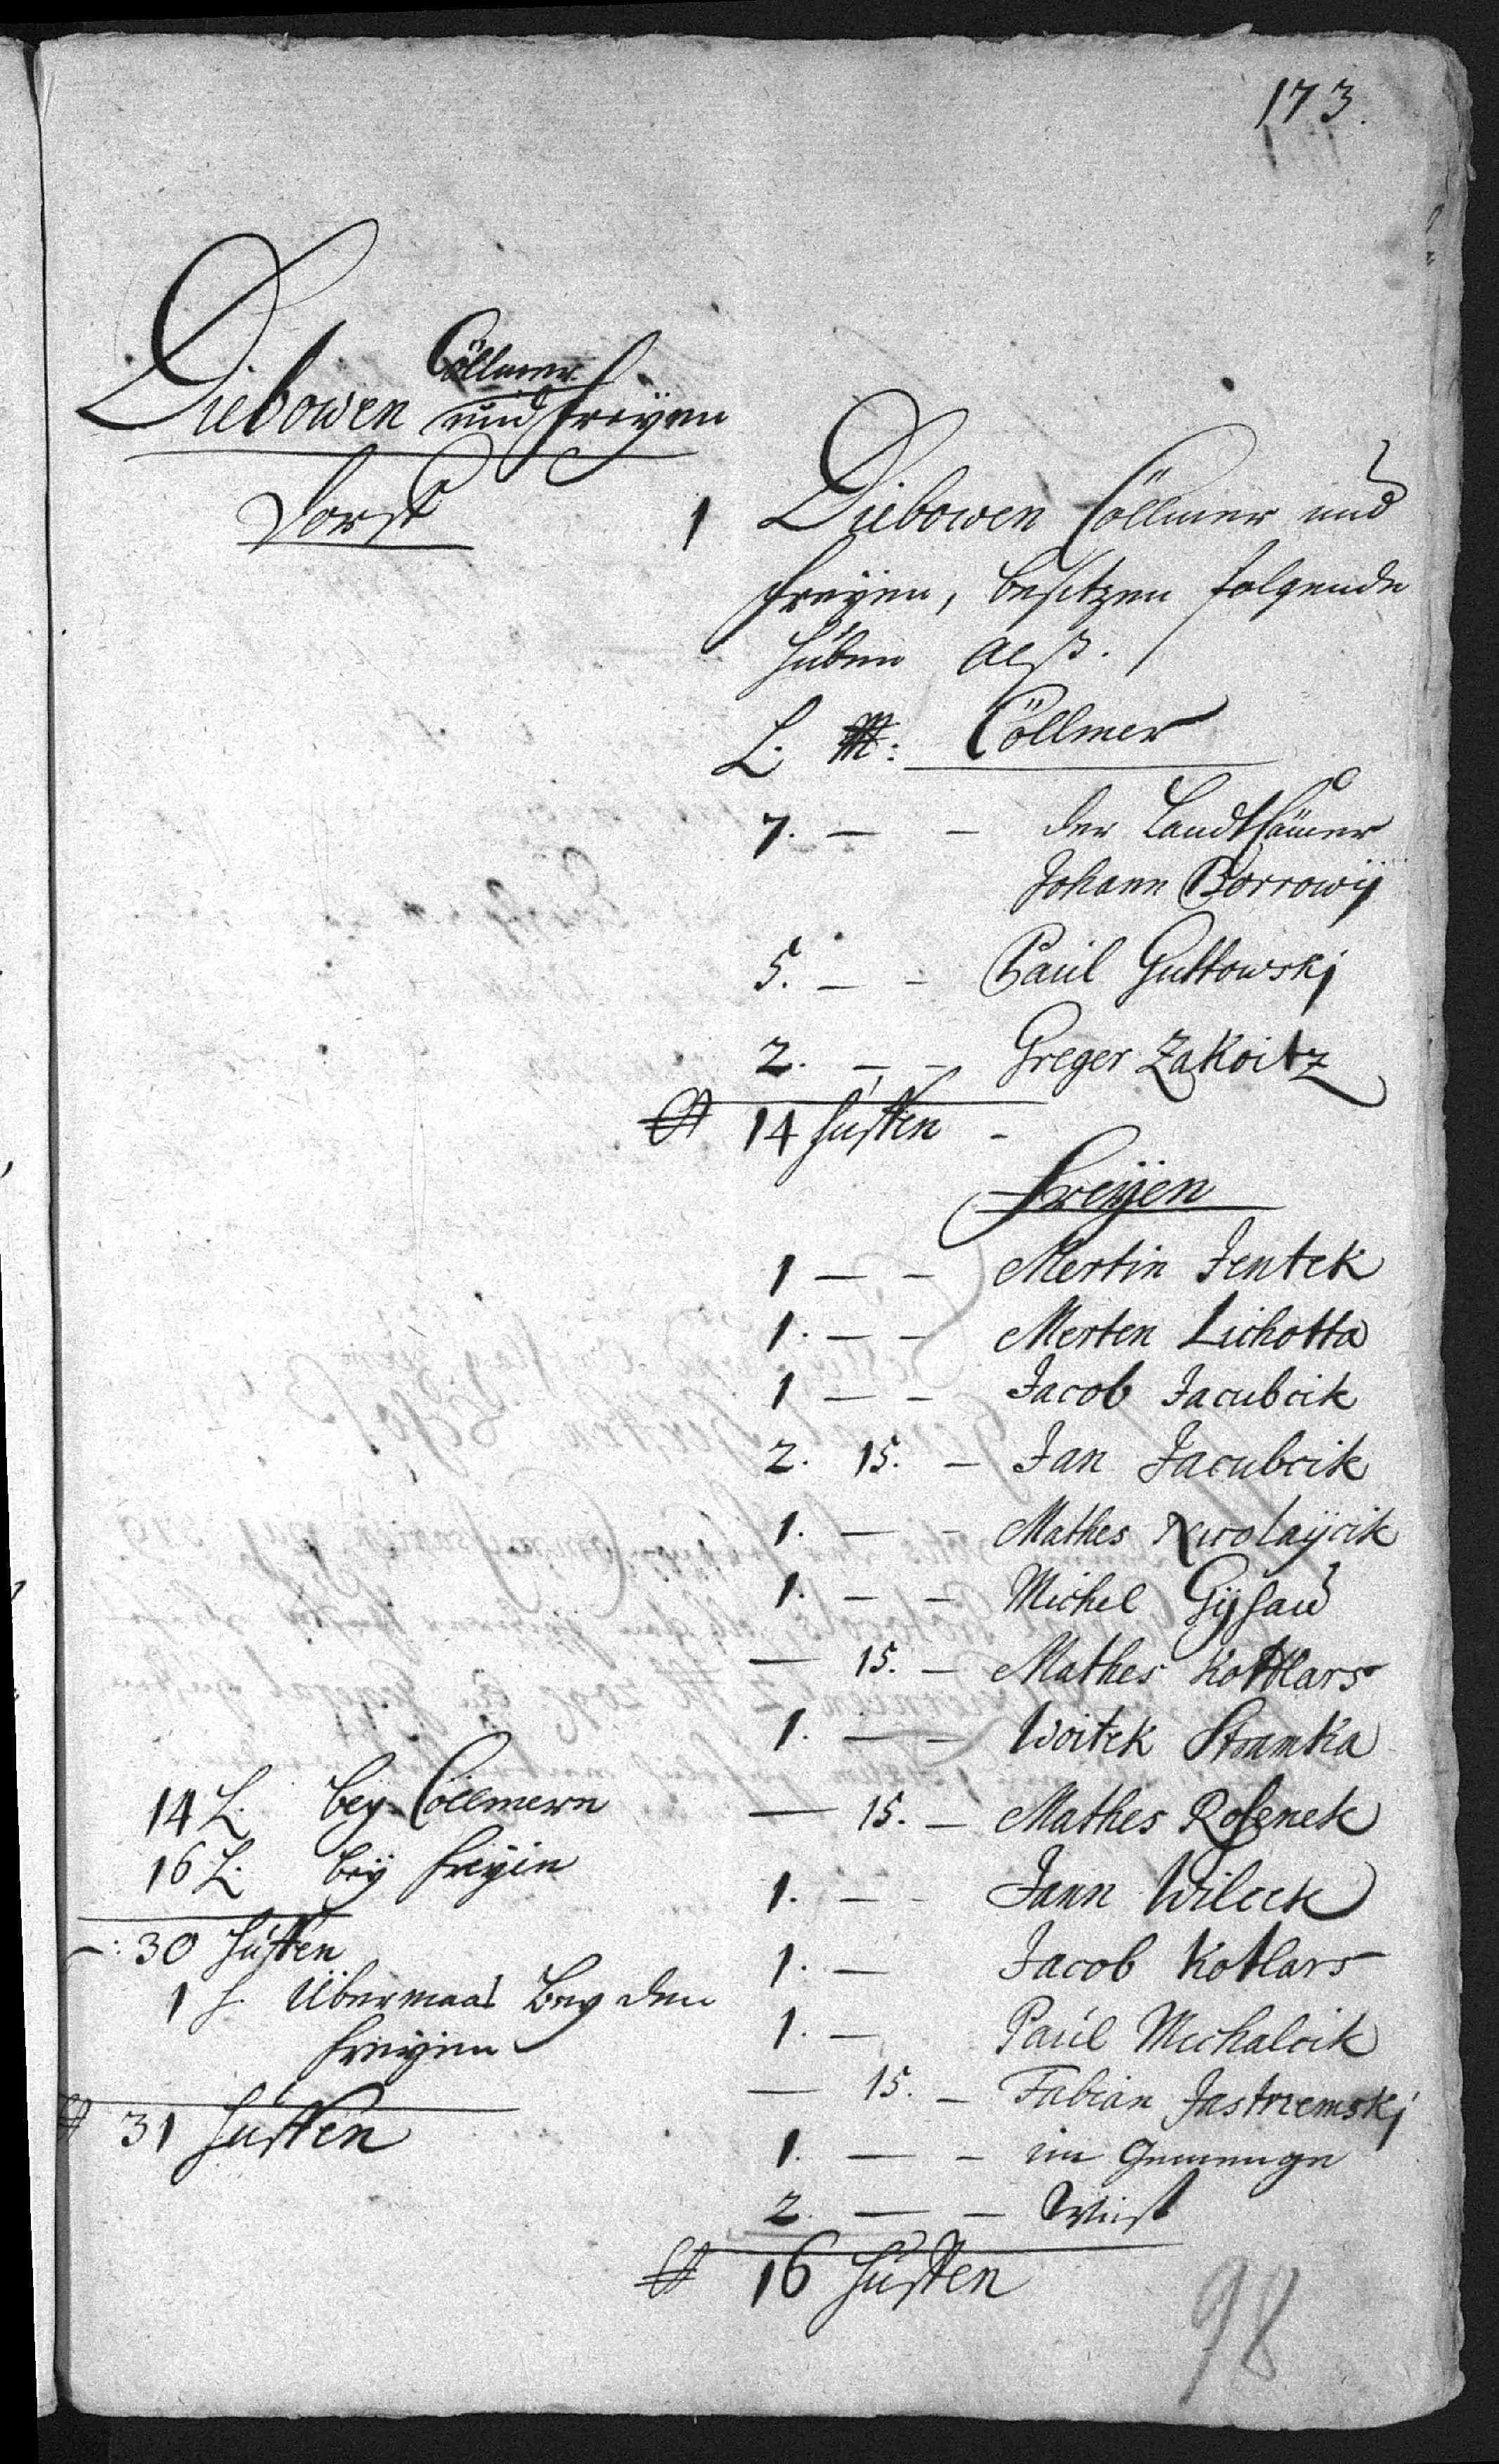 173.
Diebowen Cöllmer
und Freÿen
Dorff
1 Diebowen Cöllmer und
Freÿen, besitzen folgende
Huben alß.
H. M: Cöllmer
7. — — der Landt
Johann Borrowÿ
5. — — Paul Guttowskj
2. — — Greger Zakoitz
14 Huffen —
Freÿen
1 — — Mertin Jentek
1. — — Merten Lichotta
1 — — Jacob Jacubcik
2. 15. — Jan Jacubcik
1. — — Mathes Nicolaÿcik
1. — — Michel Gÿsau
— 15. — Mathes Kottlars
1. — — Woitek Stomka
— 15. — Mathes Rosenek
1. — — Jann Wilcek
1. — Jacob Kotlars
1. — Paul Michalcik
— 15. — Fabian Jastrzemskj
1. — — im Gemenge
2. — — Wüst
16 Huffen
14 H. beÿ Cöllmern
16 H. beÿ Freÿen
30 Huffen
1 H. Übermaas beÿ den
Freÿen
31 Huffen
98